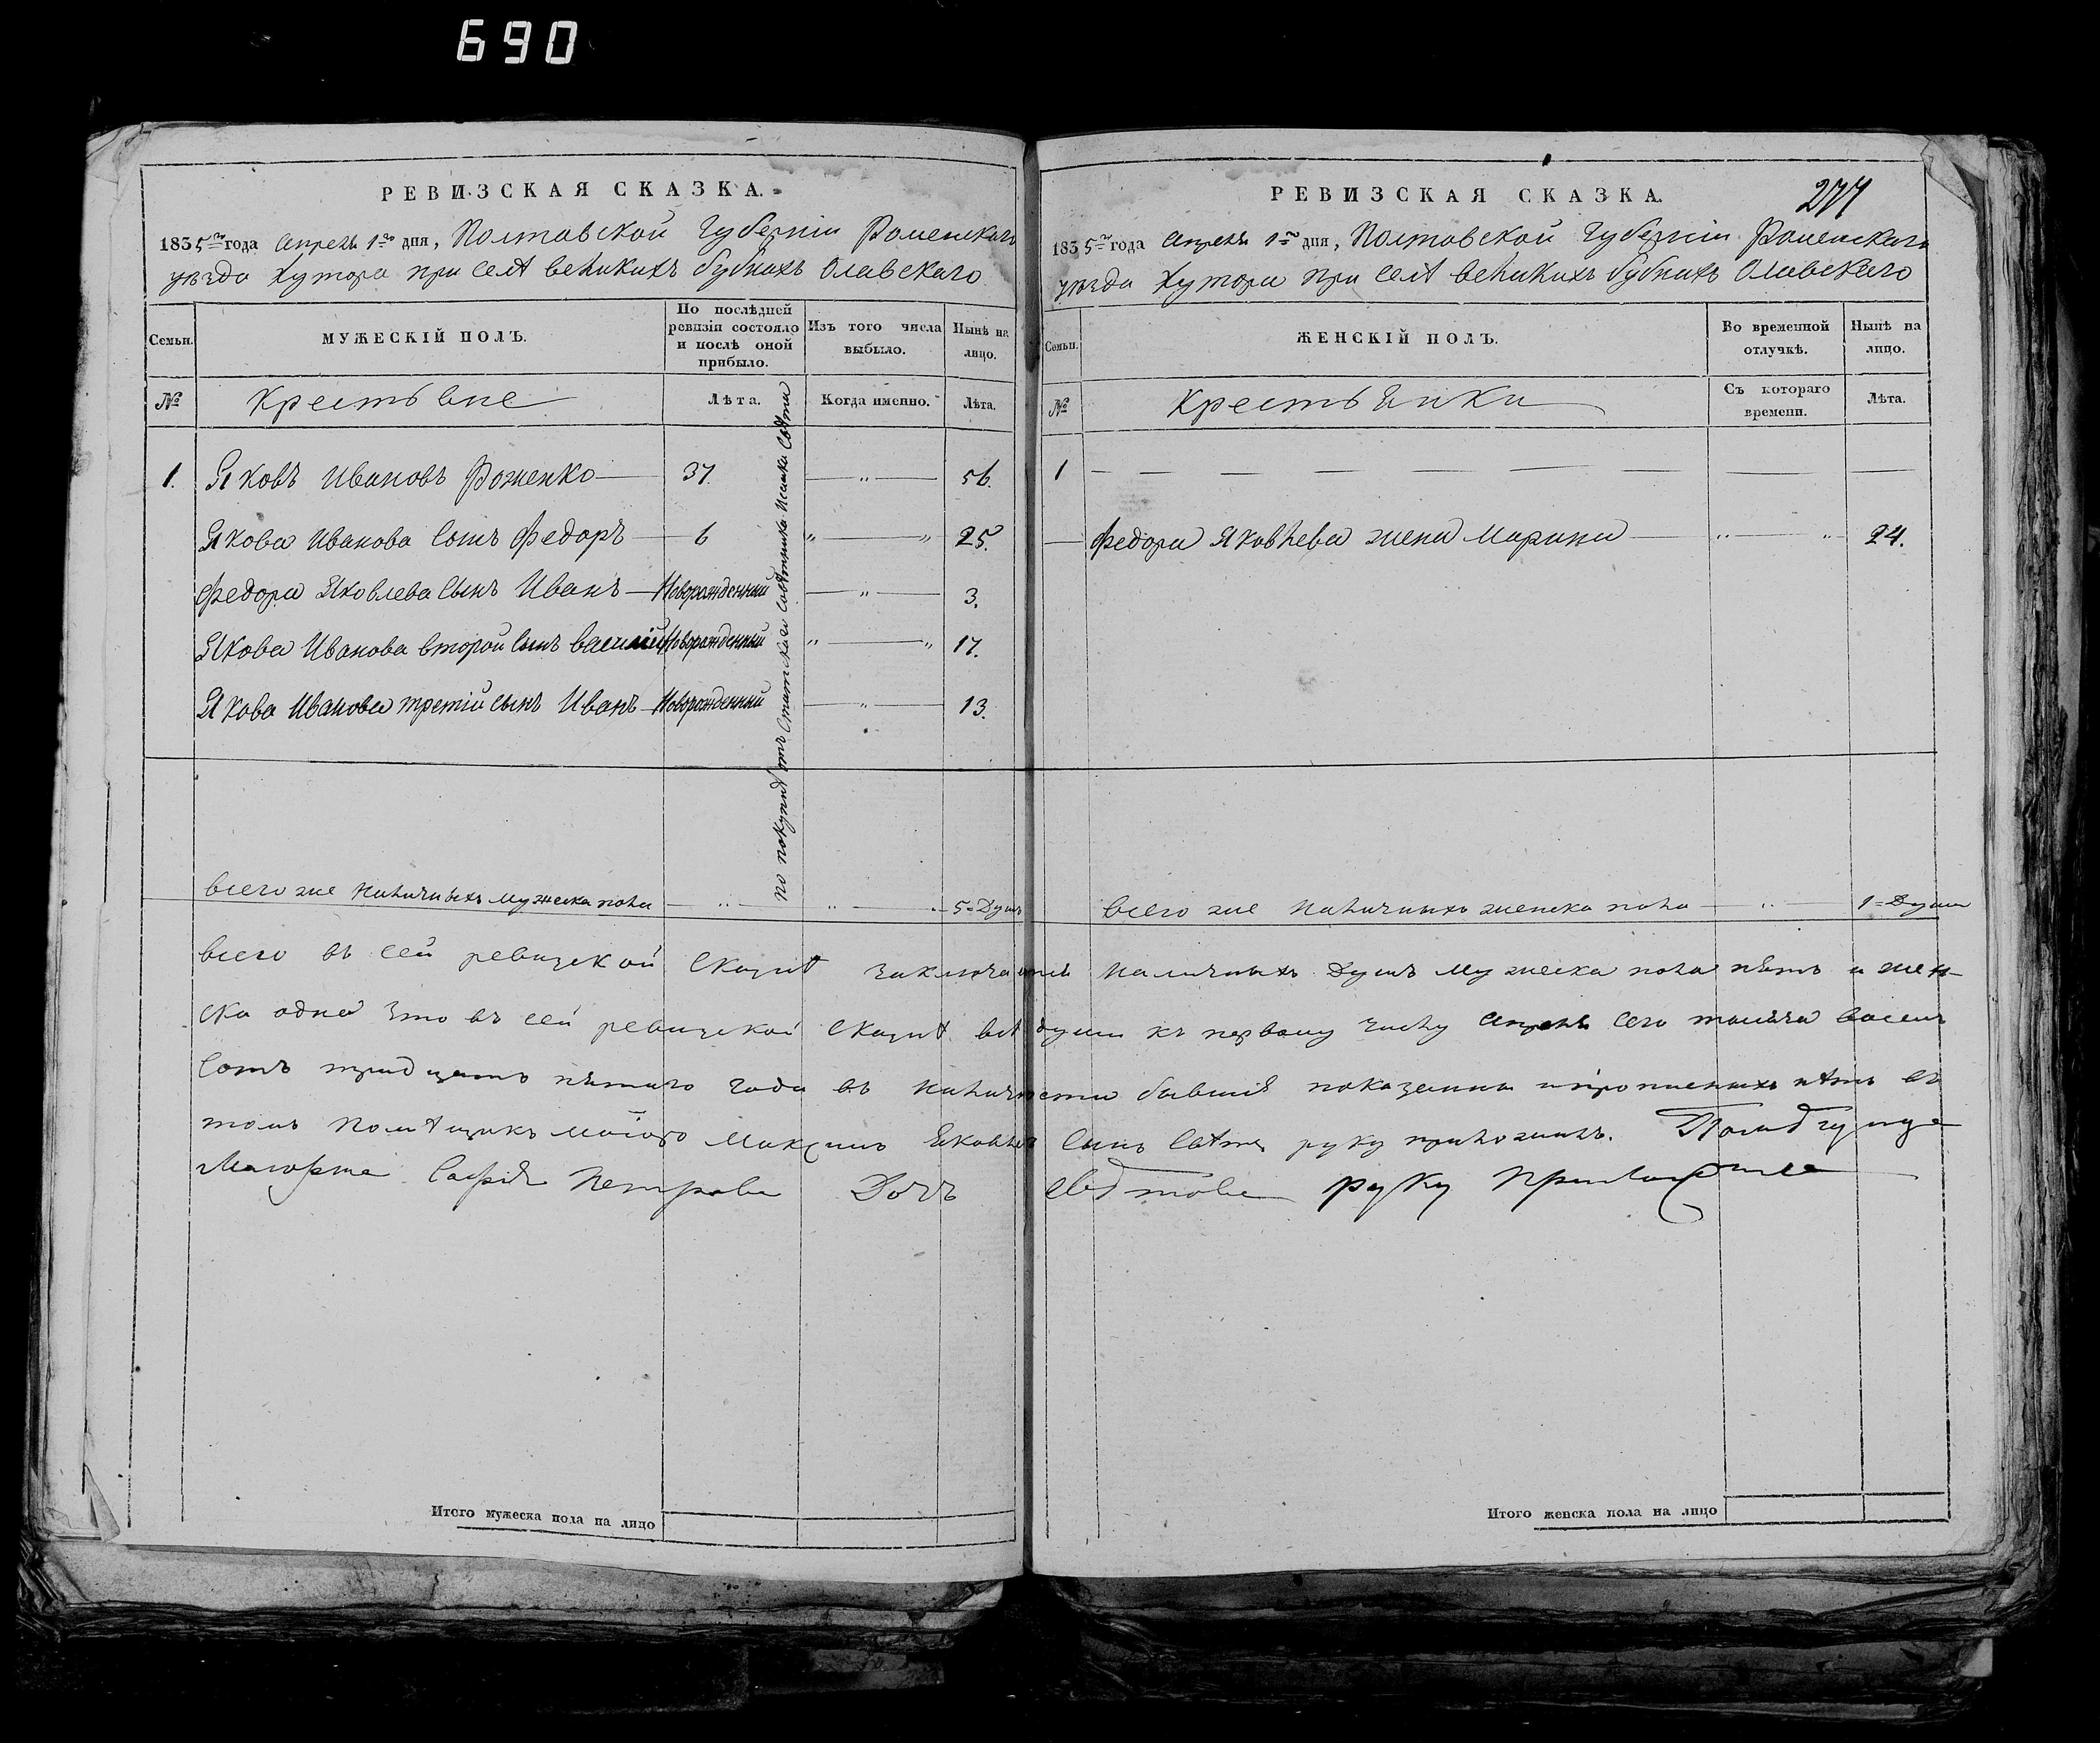 690
РЕВИЗСКАЯ СКАЗКА.
1835го года Апреля 1го дня, Полтавской Губерніи Роменскаго
уезда Хутора при селѣ великихъ бубнахъ Олавскаго
Семьи.
МУЖЕСКІЙ ПОЛЪ.
По послѣдней ревизіи состояло и послѣ оной прибыло.
Изъ того числа выбыло.
Нынѣ на лицо.
№
Крестьяне
Лѣта.
Когда именно.
Лѣта.
1. Яковъ Ивановъ Роженко 37. — " — 56.
Якова Иванова сынъ Федоръ 6 " — " 25.
Федора Яковлева сынъ Иванъ Новорожденный — " — 3.
Якова Иванова второй сынъ василий Новорожденный " — " 17.
Якова Иванова третій сынъ Иванъ Новорожденный — " — 13.
по покупкѣ отъ Статскаго Совѣтника
всего же наличныхъ мужеска пола 5 = Душъ
РЕВИЗСКАЯ СКАЗКА.
277
1835го года Апреля 1го дня, Полтавской Губерніи Роменскаго
уезда Хутора при селѣ великихъ бубнахъ Олавскаго
Семьи.
ЖЕНСКІЙ ПОЛЪ.
Во временной отлучкѣ.
Нынѣ на лицо.
№
Крестьянки
Съ котораго времени.
Лѣта.
1
Федора Яковлева жена Марина " — " 24.
всего же наличныхъ женска пола 1 = Душа
всего въ сей ревизской сказкѣ заключается наличныхъ Душъ мужеска пола пять и жен-
ска одна что въ сей ревизской сказкѣ всѣ души къ первому числу Апреля сего тысяча восемь
сотъ тридцать пятаго года въ наличности бывшія показанны и прописныхъ нѣтъ въ
томъ Помѣщикъ Максимъ Яковлевъ сынъ руку приложилъ.
Маіорша Софія Петрова Дочь руку приложила
Итого мужеска пола на лицо
Итого женска пола на лицо